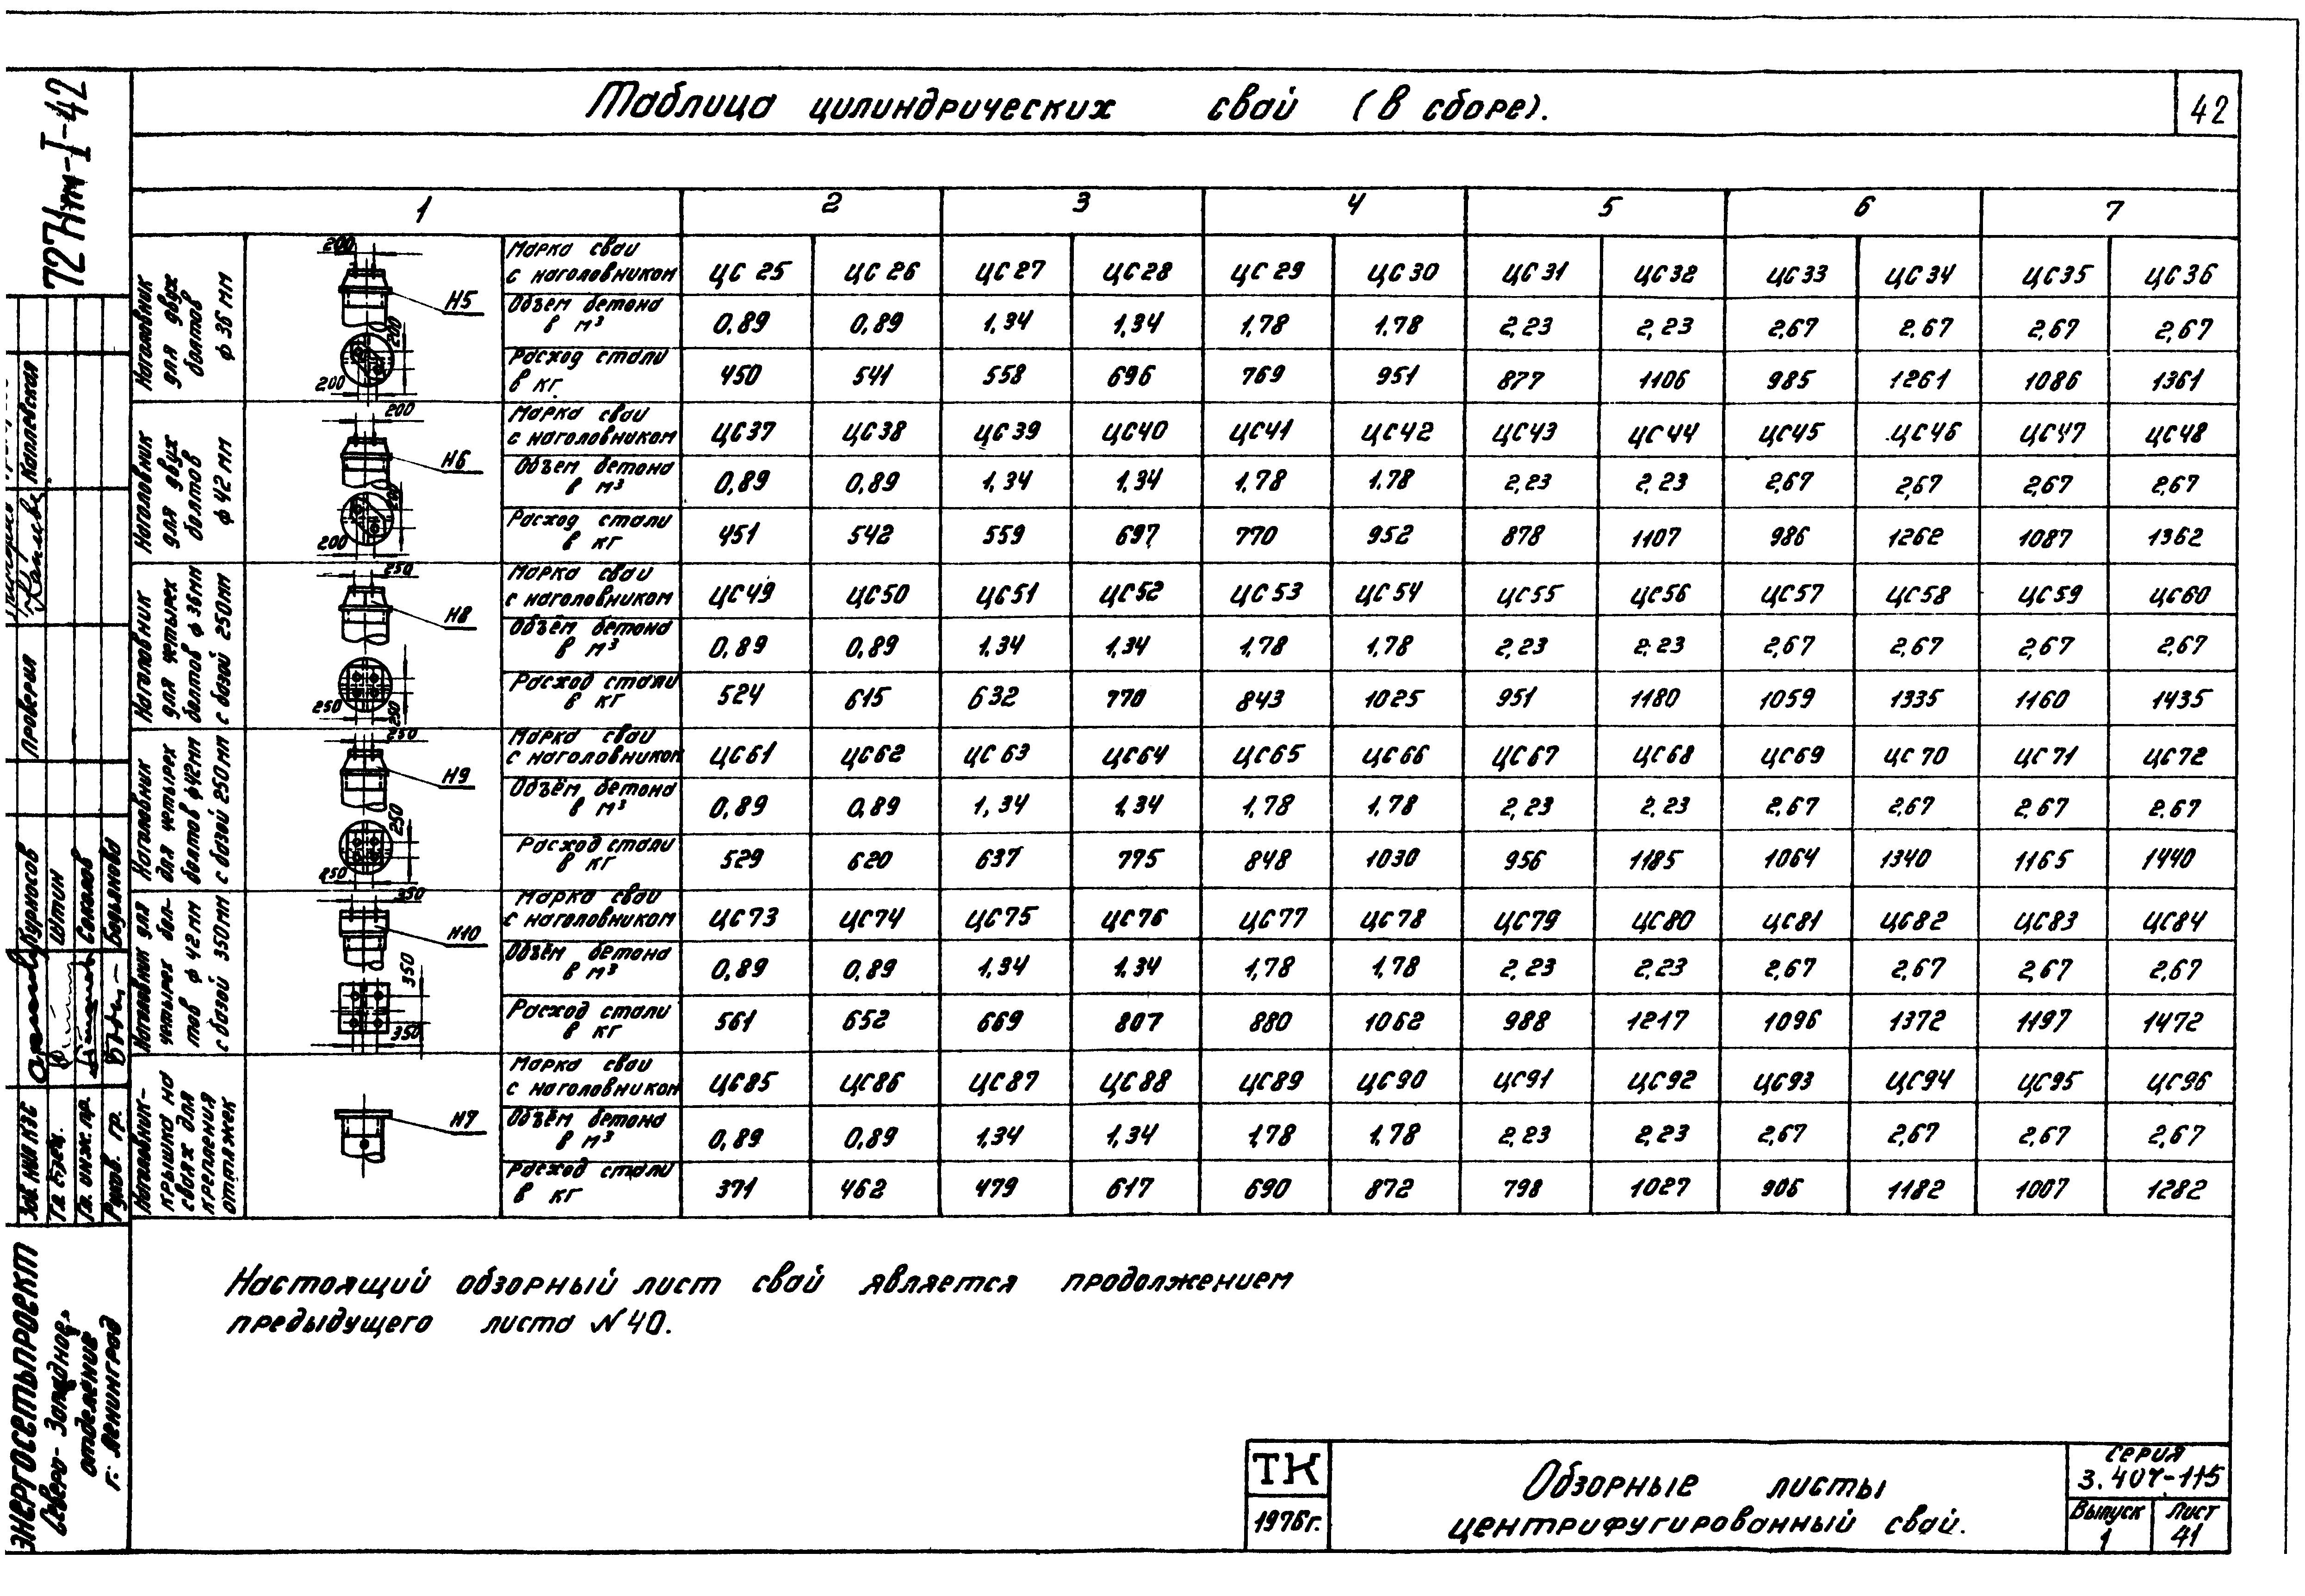 Таблица цилиндрических свай (в сборе).
42
1 2 3 4 5 6 7
Наголовник
для двух
болтов
ф 36 мм
200
Н5
200
200
Марка сваи
с наголовником
ЦС 25 ЦС 26 ЦС 27 ЦС 28 ЦС 29 ЦС 30 ЦС 31 ЦС 32 ЦС 33 ЦС 34 ЦС 35 ЦС 36
Объем бетона
в м³
0,89 0,89 1,34 1,34 1,78 1,78 2,23 2,23 2,67 2.67 2,67 2,67
Расход стали
в кг.
450 541 558 696 769 951 877 1106 985 1261 1086 1361
Наголовник
для двух
болтов
ф 42 мм
200
Н6
200
200
Марка сваи
с наголовником
ЦС37 ЦС38 ЦС39 ЦС40 ЦС41 ЦС42 ЦС43 ЦС44 ЦС45 ЦС46 ЦС47 ЦС48
Объем бетона
в м³
0,89 0,89 1,34 1,34 1,78 1.78 2,23 2,23 2,67 2,67 2,67 2,67
Расход стали
в кг
451 542 559 697 770 952 878 1107 986 1262 1087 1362
Наголовник
для четырех
болтов ф 36мм
с базой 250мм
250
Н8
250
250
Марка сваи
с наголовником
ЦС49 ЦС50 ЦС51 ЦС52 ЦС 53 ЦС 54 ЦС55 ЦС56 ЦС57 ЦС58 ЦС59 ЦС60
Объём бетона
в м³
0,89 0,89 1,34 1,34 1,78 1,78 2,23 2,23 2,67 2,67 2,67 2,67
Расход стали
в кг
524 615 632 770 843 1025 951 1180 1059 1335 1160 1435
Наголовник
для четырех
болтов ф42мм
с базой 250мм
250
Н9
250
250
Марка сваи
с наголовником
ЦС61 ЦС62 ЦС 63 ЦС64 ЦС65 ЦС66 ЦС67 ЦС68 ЦС69 ЦС 70 ЦС 71 ЦС72
Объём бетона
в м³
0,89 0,89 1,34 1,34 1,78 1,78 2,23 2,23 2,67 2,67 2,67 2.67
Расход стали
в кг
529 620 637 775 848 1030 956 1185 1064 1340 1165 1440
Наголовник для
четырех бол-
тов ф 42 мм
с базой 350мм
350
Н10
350
350
Марка сваи
с наголовником
ЦС73 ЦС74 ЦС75 ЦС76 ЦС77 ЦС78 ЦС79 ЦС80 ЦС81 ЦС82 ЦС83 ЦС84
Объём бетона
в м³
0,89 0,89 1,34 1.34 1,78 1,78 2,23 2,23 2,67 2,67 2,67 2,67
Расход стали
в кг
561 652 669 807 880 1062 988 1217 1096 1372 1197 1472
Наголовник-
крышка на
сваях для
крепления
оттяжек
Н7
Марка сваи
с наголовником
ЦС85 ЦС86 ЦС87 ЦС88 ЦС89 ЦС90 ЦС91 ЦС92 ЦС93 ЦС94 ЦС95 ЦС96
Объём бетона
в м³
0,89 0,89 1,34 1,34 1,78 1,78 2,23 2,23 2,67 2,67 2,67 2,67
Расход стали
в кг
371 462 479 617 690 872 798 1027 906 1182 1007 1282
Настоящий обзорный лист свай является продолжением
предыдущего листа N 40.
ТК
1976г.
Обзорные листы
центрифугированный свай.
Серия
3.407-115
Выпуск
1
Лист
41
727Нтм-I-42
Каплевская
Проверил
Курносов
Штин
Соколов
Зав. НИЛКЭС
Гл. инж. пр.
Руков. гр.
ЭНЕРГОСЕТЬПРОЕКТ
Северо-Западное
отделение
г. Ленинград